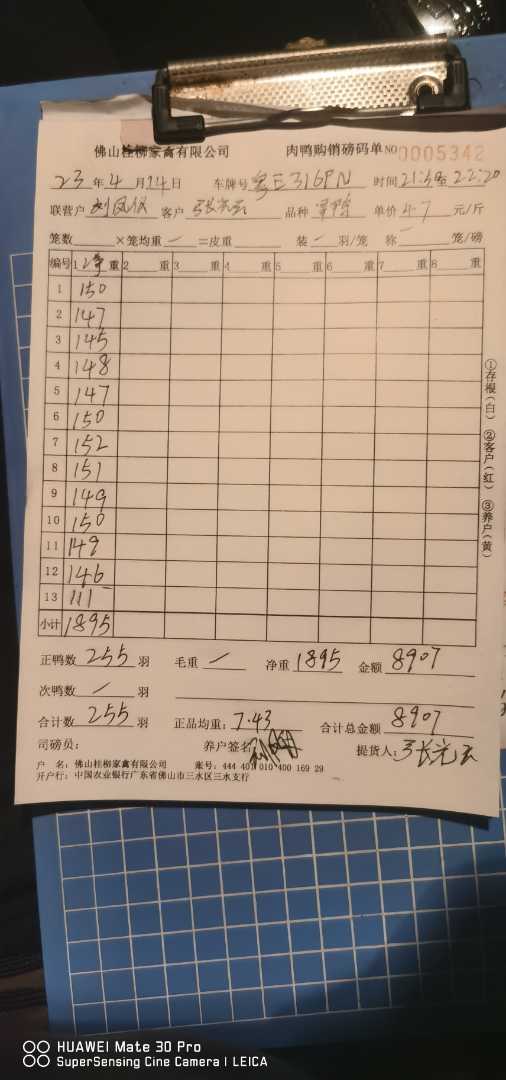 佛山桂柳家禽有限公司 肉鸭购销磅码单 NO 0005342
23 年 4 月 14 日 车牌号 粤E316PN 时间 21:40至22:20
联营户 客户 张光云 品种 单价 4.7 元/斤
笼数 ×笼均重 — =皮重 装 — 羽/笼 称 — 笼/磅
编号 1 净 重 2 重 3 重 4 重 5 重 6 重 7 重 8 重
1 150
2 147
3 145
4 148
5 147
6 150
7 152
8 151
9 149
10 150
11 149
12 146
13 111
小计 1895
正鸭数 255 羽 毛重 / 净重 1895 金额 8907
次鸭数 / 羽
合计数 255 羽 正品均重: 7.43 合计总金额 8907
司磅员: 养户签名: 提货人: 张光云
户 名: 佛山桂柳家禽有限公司 账号: 444 401 010 400 169 29
开户行: 中国农业银行广东省佛山市三水区三水支行
①存根(白) ②客户(红) ③养户(黄)
HUAWEI Mate 30 Pro
SuperSensing Cine Camera | LEICA